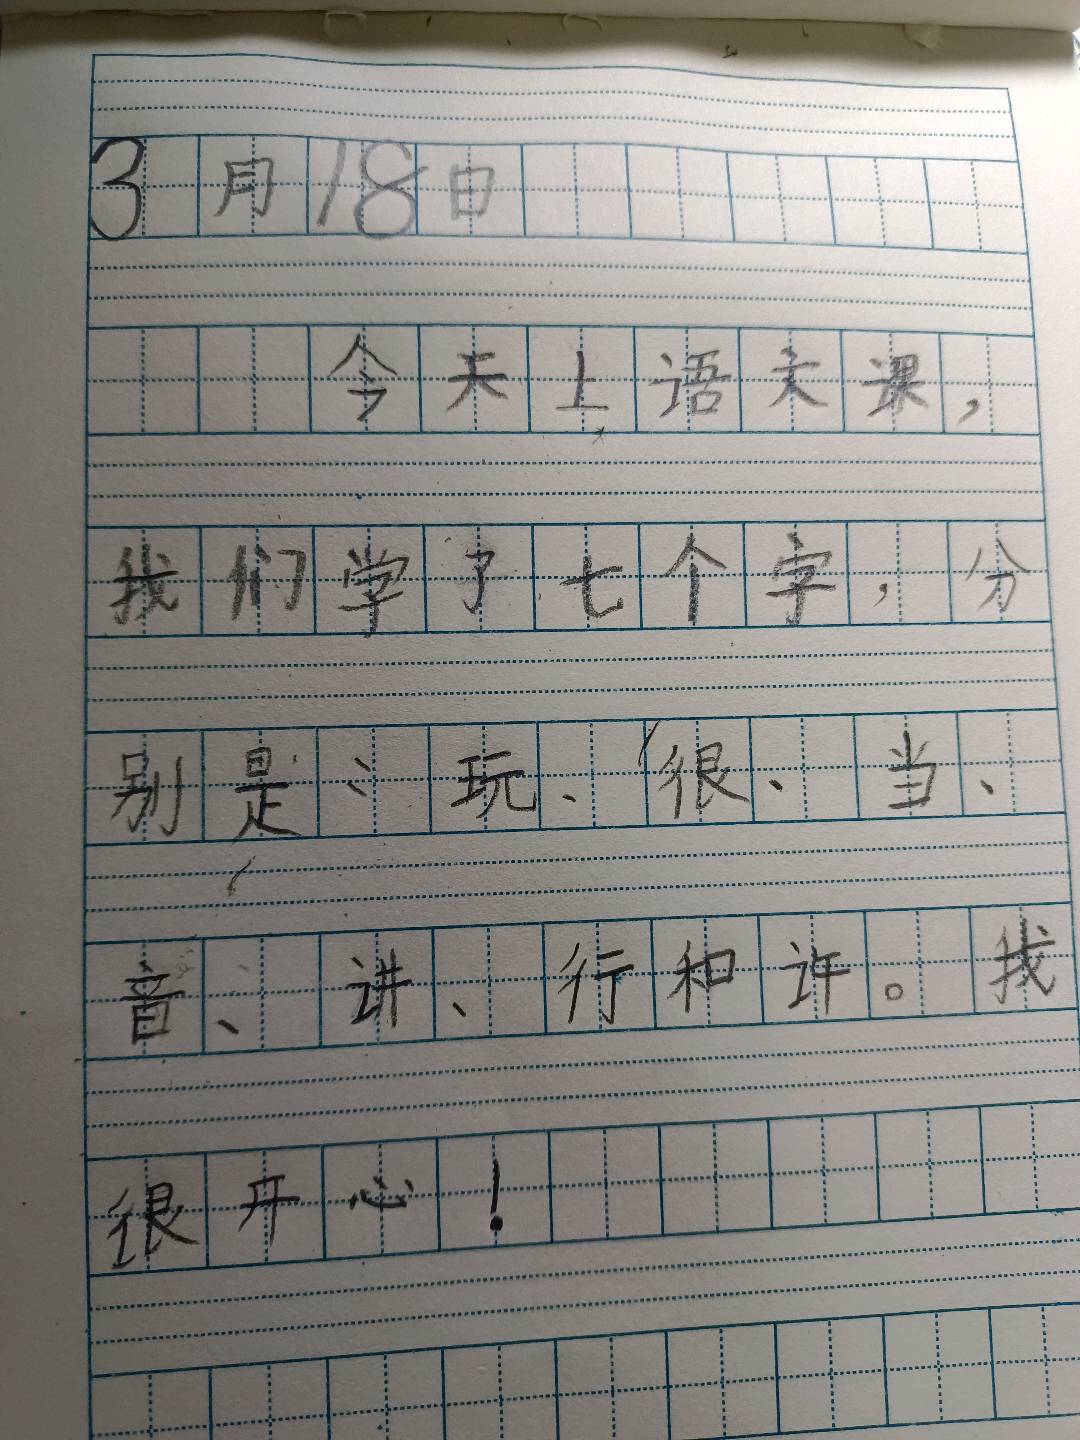 3月18日
今天上语文课，
我们学了七个字，分
别是：玩、很、当、
音、讲、行和许。我
很开心！